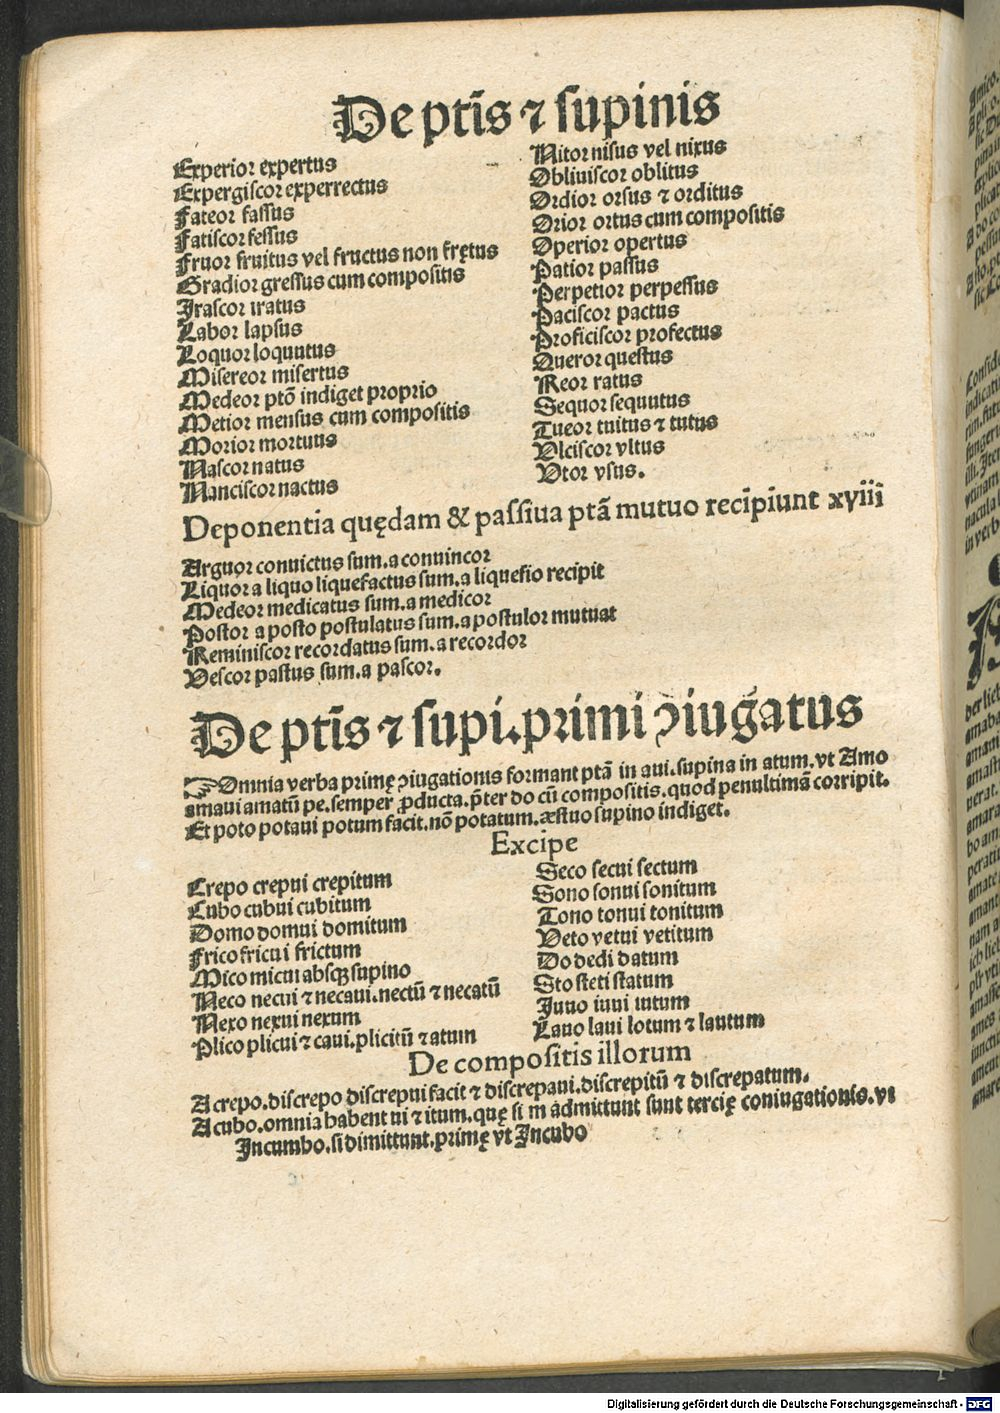 De ptīs ⁊ supinis
Experior expertus
Expergiscor experrectus
Fateor fassus
Fatiscor fessus
Fruor fruitus vel fructus non frętus
Gradior gressus cum compositis
Irascor iratus
Labor lapsus
Loquor loquutus
Misereor misertus
Medeor ptō indiget proprio
Metior mensus cum compositis
Morior mortuus
Nascor natus
Nanciscor nactus
Nitor nisus vel nixus
Obliuiscor oblitus
Ordior orsus ⁊ orditus
Orior ortus cum compositis
Operior opertus
Patior passus
Perpetior perpessus
Paciscor pactus
Proficiscor profectus
Queror questus
Reor ratus
Sequor sequutus
Tueor tuitus ⁊ tutus
Vlciscor vltus
Vtor vsus.
Deponentia quędam & passiua ptā mutuo recipiunt xviii
Arguor conuictus sum.a conuincor
Liquor a liquo liquefactus sum.a liquefio recipit
Medeor medicatus sum.a medicor
Postor a posto postulatus sum.a postulor mutuat
Reminiscor recordatus sum.a recordor
Vescor pastus sum.a pascor.
De ptīs ⁊ supi.primi ↄiugatus
☞Omnia verba primę ↄiugationis formant ptā in aui.supina in atum.vt Amo
amaui amatū pe.semper ꝓducta.p̄ter do cū compositis.quod penultimā corripit.
Et poto potaui potum facit.nō potatum.æstuo supino indiget.
Excipe
Crepo crepui crepitum
Cubo cubui cubitum
Domo domui domitum
Frico fricui frictum
Mico micui absqꝫ supino
Neco necui ⁊ necaui.nectū ⁊ necatū
Nexo nexui nexum
Plico plicui ⁊ caui.plicitū ⁊ atum
Seco secui sectum
Sono sonui sonitum
Tono tonui tonitum
Veto vetui vetitum
Do dedi datum
Sto steti statum
Iuuo iuui iutum
Lauo laui lotum ⁊ lautum
De compositis illorum
A crepo.discrepo discrepui facit ⁊ discrepaui.discrepitū ⁊ discrepatum.
A cubo.omnia habent ui ⁊ itum.quę si m admittunt sunt tercię coniugationis.vt
Incumbo.si dimittunt.primę vt Incubo
Digitalisierung gefördert durch die Deutsche Forschungsgemeinschaft - DFG